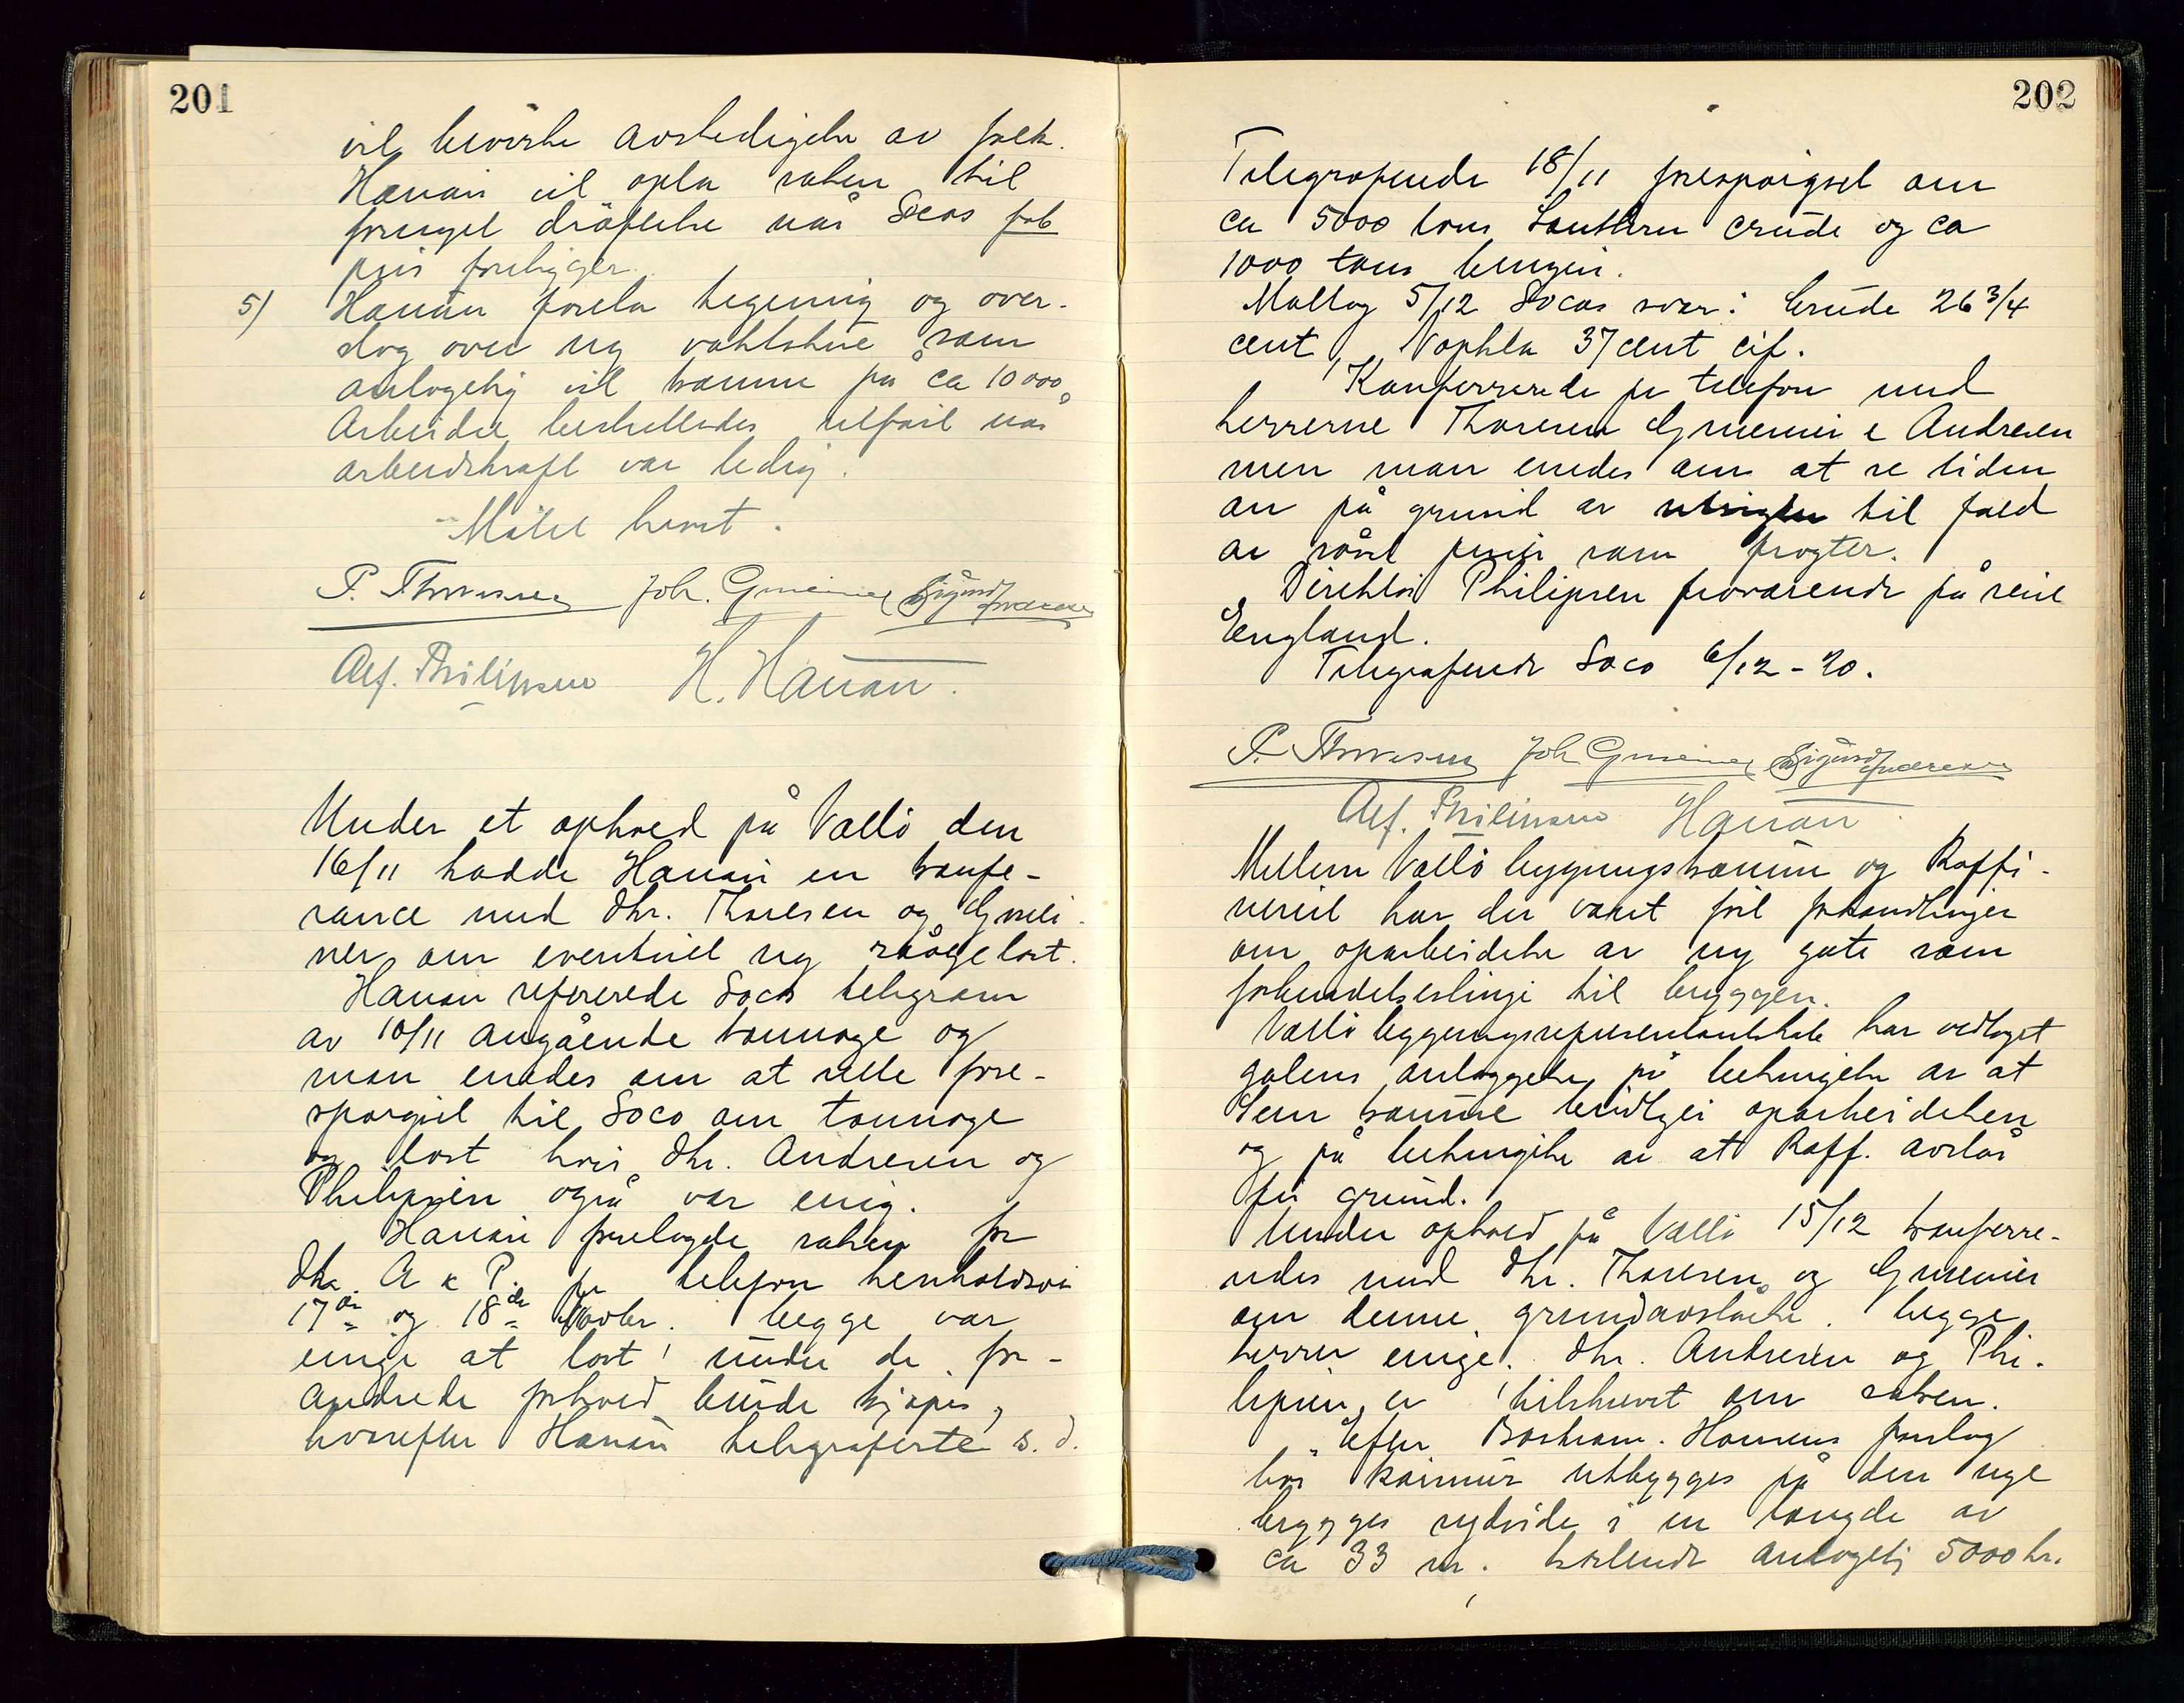 201
vil bevirke avskedigelse av folk.
Hanan vil opta saken til
fornyet dröftelse når Socos fob
pris foreligger.
5) Hanan forela tegning og over-
slag over ny vaktstue som
antagelig vil komme på ca 10000,
Arbeidet besluttedes utfört når
arbeidskraft var ledig.
Mötet hevet.
P. Thoresen Joh. Gmeiner Sigurd Andresen
Alf. Philipsen H. Hanan.
Under et ophold på Vallö den
16/11 hadde Hanan en konfe-
rance med dhr. Thoresen og Gmei-
ner om eventuel ny råoljelast.
Hanan refererede Socos telegram
av 10/11 angående tonnage og
man enedes om at stille fore-
spörgsel til Soco om tonnage
og last hvis dhr. Andresen og
Philipsen også var enig.
Hanan forelagde saken for
dhr. A & P. per telefon henholdsvis
17de og 18de Novbr. begge var
enige at last under de for-
andrede forhold burde kjöpes,
hvorefter Hanan telegraferte s. d.
202
Telegraferede 18/11 forespörgsel om
ca 5000 tons Southern crude og ca
1000 tons bensin.
Mottog 5/12 Socos svar: Crude 26 3/4
cent, Naphta 37 cent cif.
Konfererede per telefon med
herrerne Thoresen Gmeiner & Andresen
men man enedes om at se tiden
an på grund av utsigten til fald
av såvel priser som fragter.
Direktör Philipsen fraværende på reise
England.
Telegraferede Soco 6/12-20.
P. Thoresen Joh Gmeiner Sigurd Andresen
Alf. Philipsen Hanan.
Mellem Vallö bygningskomm og Raffi-
neriet har der været fört forhandlinger
om oparbeidelse av ny gate som
forbindelseslinje til bryggen.
Vallö bygningsrepresentantskab har vedtaget
gatens anlæggelse på betingelse av at
Sem komune besörger oparbeidelsen
og på betingelse av at Raff. avstår
fri grund.
Under ophold på Vallö 15/12 konferre-
redes med dhr. Thoresen og Gmeiner
om denne grundavståelse. begge
herrer enige. dhr. Andresen og Phi-
lipsen er tilskrevet om saken.
Efter Hansens forslag
bör kaimur utbygges på den nye
brygges sydside i en længde av
ca 33 m. kostende antagelig 5000 kr.